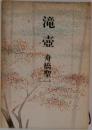 滝壺
舟橋聖一